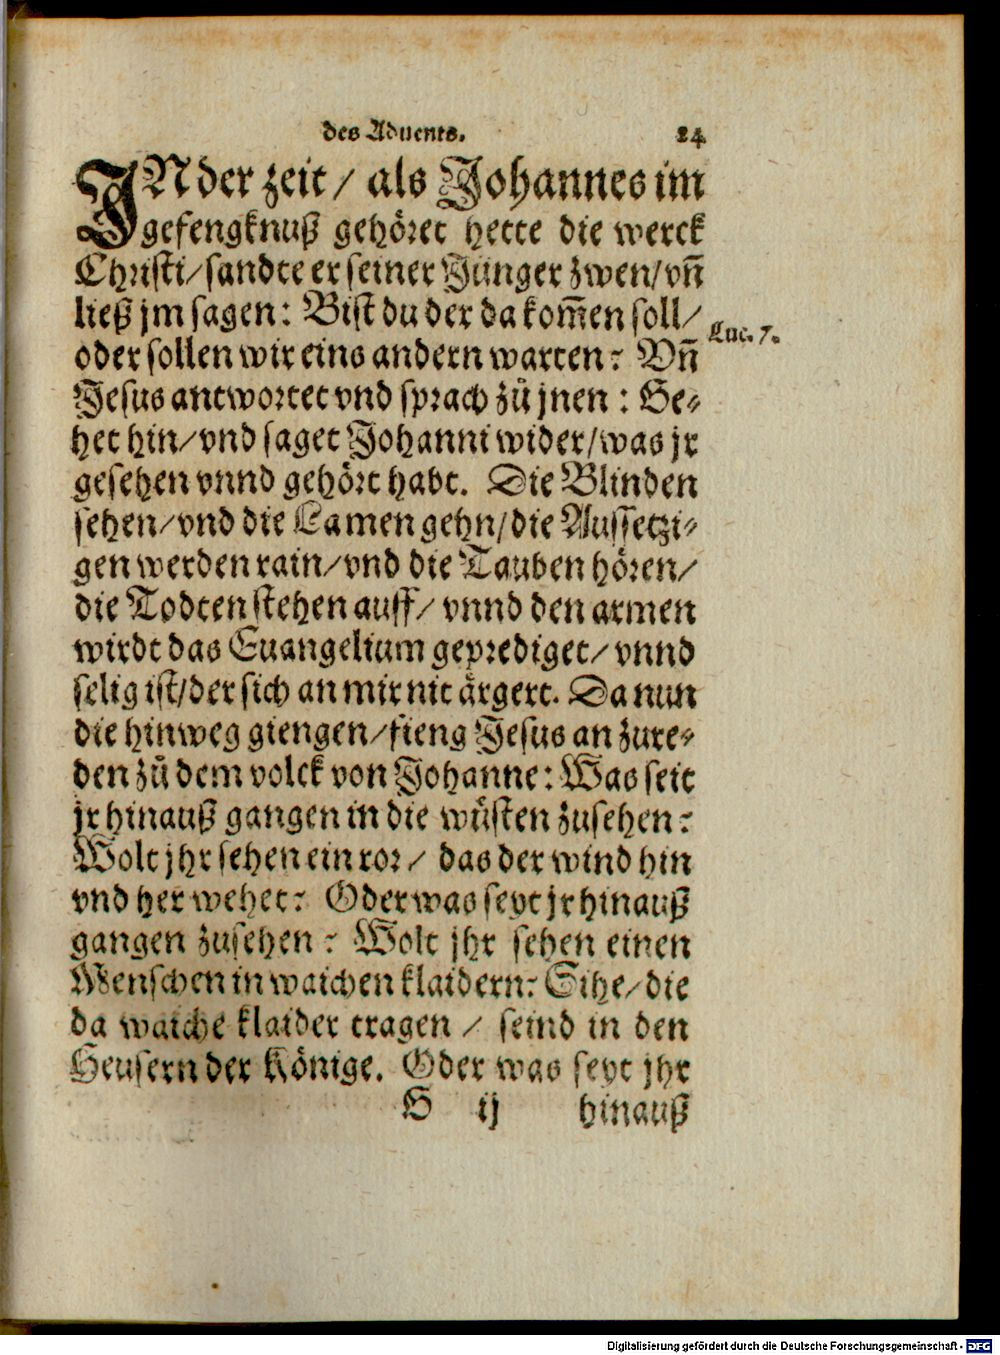 des Aduents. 24
JN der zeit / als Johannes im
gefengknuß gehöret hette die werck
Christi / sandte er seiner Jünger zwen / vñ
ließ jm sagen: Bist du der da kom̃en soll /
oder sollen wir eins andern warten? Vñ
Luc. 7.
Jesus antwortet vnd sprach zů jnen : Ge⸗
het hin / vnd saget Johanni wider / was jr
gesehen vnnd gehört habt. Die Blinden
sehen / vnd die Lamen gehn / die Aussetzi⸗
gen werden rain / vnd die Tauben hören /
die Todten stehen auff / vnnd den armen
wirdt das Euangelium geprediget / vnnd
selig ist / der sich an mir nit ärgert. Da nun
die hinweg giengen / fieng Jesus an zure⸗
den zů dem volck von Johanne: Was seit
jr hinauß gangen in die wüsten zusehen?
Wolt jhr sehen ein ror / das der wind hin
vnd her wehet? Oder was seyt jr hinauß
gangen zusehen ? Wolt jhr sehen einen
Menschen in waichen klaidern? Sihe / die
da waiche klaider tragen / seind in den
Heusern der Könige. Oder was seyt jhr
H ij hinauß
Digitalisierung gefördert durch die Deutsche Forschungsgemeinschaft - DFG